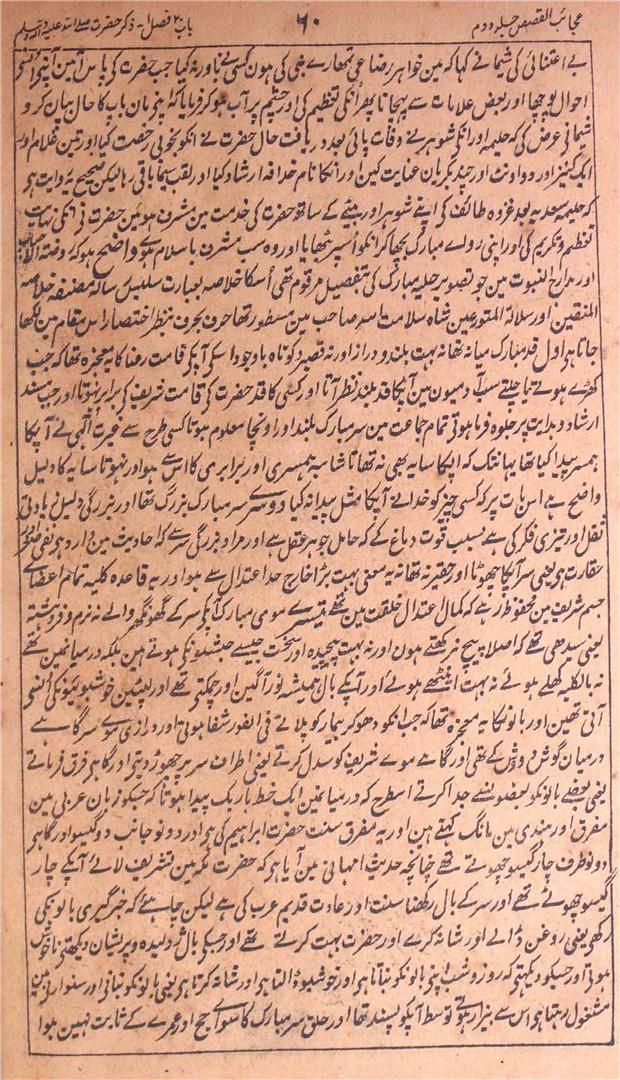 عجائب القصص جلد دوم ۶۰ باب ۲۰ فصل ۱۔ ذکر حضرت صلے اللہ علیہ وآلہ وسلم
بے اعتنائی کی شیما نے کہا کہ مین خواہر رضاعی تمھارے نبی کی ہون کسی نے باور نہ کیا جب حضرت کے پاس آئین آنحضرت نے انسے
احوال پوچھا اور بعض علامات سے پہچانا پھر انکی تعظیم کی اور چشم پر آب ہو کر فرمایا کہ اپنے مان باپ کا حال بیان کرو
شیما نے عرض کی کہ حلیمہ اور انکے شوہر نے وفات پائی بعد دریافت حال حضرت نے انکو بخوبی رخصت کیا اور تین غلام اور
ایک کنیز اور دو اونٹ اور چند بکریان عنایت کین اور انکا نام خدافہ ارشاد کیا اور لقب شیما باقی رہا لیکن صحیح یہ روایت ہی
کہ حلیمہ سعدیہ بعد غزوہ طائف کی اپنے شوہر اور بیٹے کے ساتھ حضرت کی خدمت مین مشرف ہوئین حضرت نے انکی نہایت
تعظیم و تکریم کی اور اپنی رداے مبارک بچھا کر انکو اُسپر بٹھایا اور وہ سب مشرف باسلام ہوے واضح ہو کہ روضۃ الاحباب
اور مدارج النبوت مین جو تصویر حلیہ مبارک کی بتفصیل مرقوم تھی اُسکا خلاصہ بعبارت سلیس رسالہ مصنفہ خلاصہ
المتقین اور سلالۃ المتورعین شاہ سلامت اللہ صاحب مین مسطور تھا حرف بحرف بنظر اختصار اس مقام مین لکھا
جاتا ہی اول قد مبارک میانہ تھا نہ بہت بلند و دراز اور نہ قصیر و کوتاہ باوجود اسکے آپکے قامت رعنا کا یہ معجزہ تھا کہ جب
کھڑے ہوتے یا چلتے سب آدمیون مین آپکا قد بلند نظر آتا اور کسی کا قد حضرت کی قامت شریف کی برابر نہوتا اور جب مسند
ارشاد و ہدایت پر جلوہ فرما ہوتی تمام جماعت مین سر مبارک بلند اور اونچا معلوم ہوتا کسی طرح سے غیرت الٰہی نے آپکا
ہمسر پیدا نکیا تھا یہانتک کہ آپکا سایہ بھی نہ تھا تا شائبہ ہمسری اور برابری کا اس سے ہو اور نہوتا سایہ کا دلیل
واضح ہے اس بات پر کہ کسی چیز کو خدا نے آپکا مثل پیدا نہ کیا دوسرے سر مبارک بزرگ تھا اور بزرگی دلیل زیادتی
عقل اور تیزی فکر کی ہے بسبب قوت دماغ کے کہ حامل جوہر عقل ہے اور مراد بزرگی سر سے کہ احادیث مین وارد ہی نفی صغر و
حقارت ہی یعنی سر آپکا چھوٹا اور حقیر نہ تھا نہ یہ معنی بہت بڑا خارج حد اعتدال سے ہو اور یہ قاعدہ کلیہ تمام اعضاے
جسم شریف مین محفوظ رہے کہ کمال اعتدال خلقت مین تھے تیسرے موی مبارک آپکے سر کے گھونگھر والے نہ نرم و فروہشتہ
یعنی سیدھی تھے کہ اصلا پیچ نہ رکھتے ہون اور نہ بہت پیچیدہ اور سخت جیسے حبشیونکی ہوتے ہین بلکہ درمیانمین تھے
نہ بالکلیہ کھلے ہوئے نہ بہت اینٹھے ہوئے اور آپکے بال ہمیشہ نور آگین اور چمکتی تھے اور لپٹین خوشبوئیونکی اُنسے
آتی تھین اور بالونکا یہ معجزہ تھا کہ جب انکو دھو کر بیمار کو پلاتے فی الفور شفا ہوتی اور درازی موے سر گاہے
درمیان گوش و دوش کے تھی اور گاہے موے شریف کو سدل کرتے یعنی اطراف سر پر چھوڑ دیتی اور گاہی فرق فرماتے
یعنی بعضے بالونکو بعضونسے جدا کرتے اسطرح کہ درمیانمین ایک خط باریک پیدا ہوتا کہ جسکو زبان عربی مین
مفرق اور ہندی مین مانگ کہتے ہین اور یہ مفرق سنت حضرت ابراہیم کی ہی اور دونو جانب دو گیسو اور گاہی
دونو طرف چار گیسو چھوٹے تھے چنانچہ حدیث امہانی مین آیا ہی کہ حضرت مکہ مین تشریف لائے آپکے چار
گیسو چھوٹے تھے اور سر کے بال رکھنا سنت اور عادت قدیم عرب کی ہے لیکن چاہئے کہ خبر گیری بالونکی
رکھے یعنی روغن ڈالے اور شانہ کرے اور حضرت بہت کرتے تھے اور جسکے بال ژولیدہ و پریشان دیکھتے ناخوش
ہوتی اور جسکو دیکھتے کہ روز و شب اپنی بالونکو بناتا ہی اور خوشبو ڈالتا ہی اور شانہ کرتا ہی یعنی بالونکو بنانی اور سنوارنیمین
مشغول رہتا ہی اس سے بیزار ہوتے توسط آپکو پسند تھا اور حلق سر مبارک کا سواے حج اور عمرے کے ثابت نہین ہوا